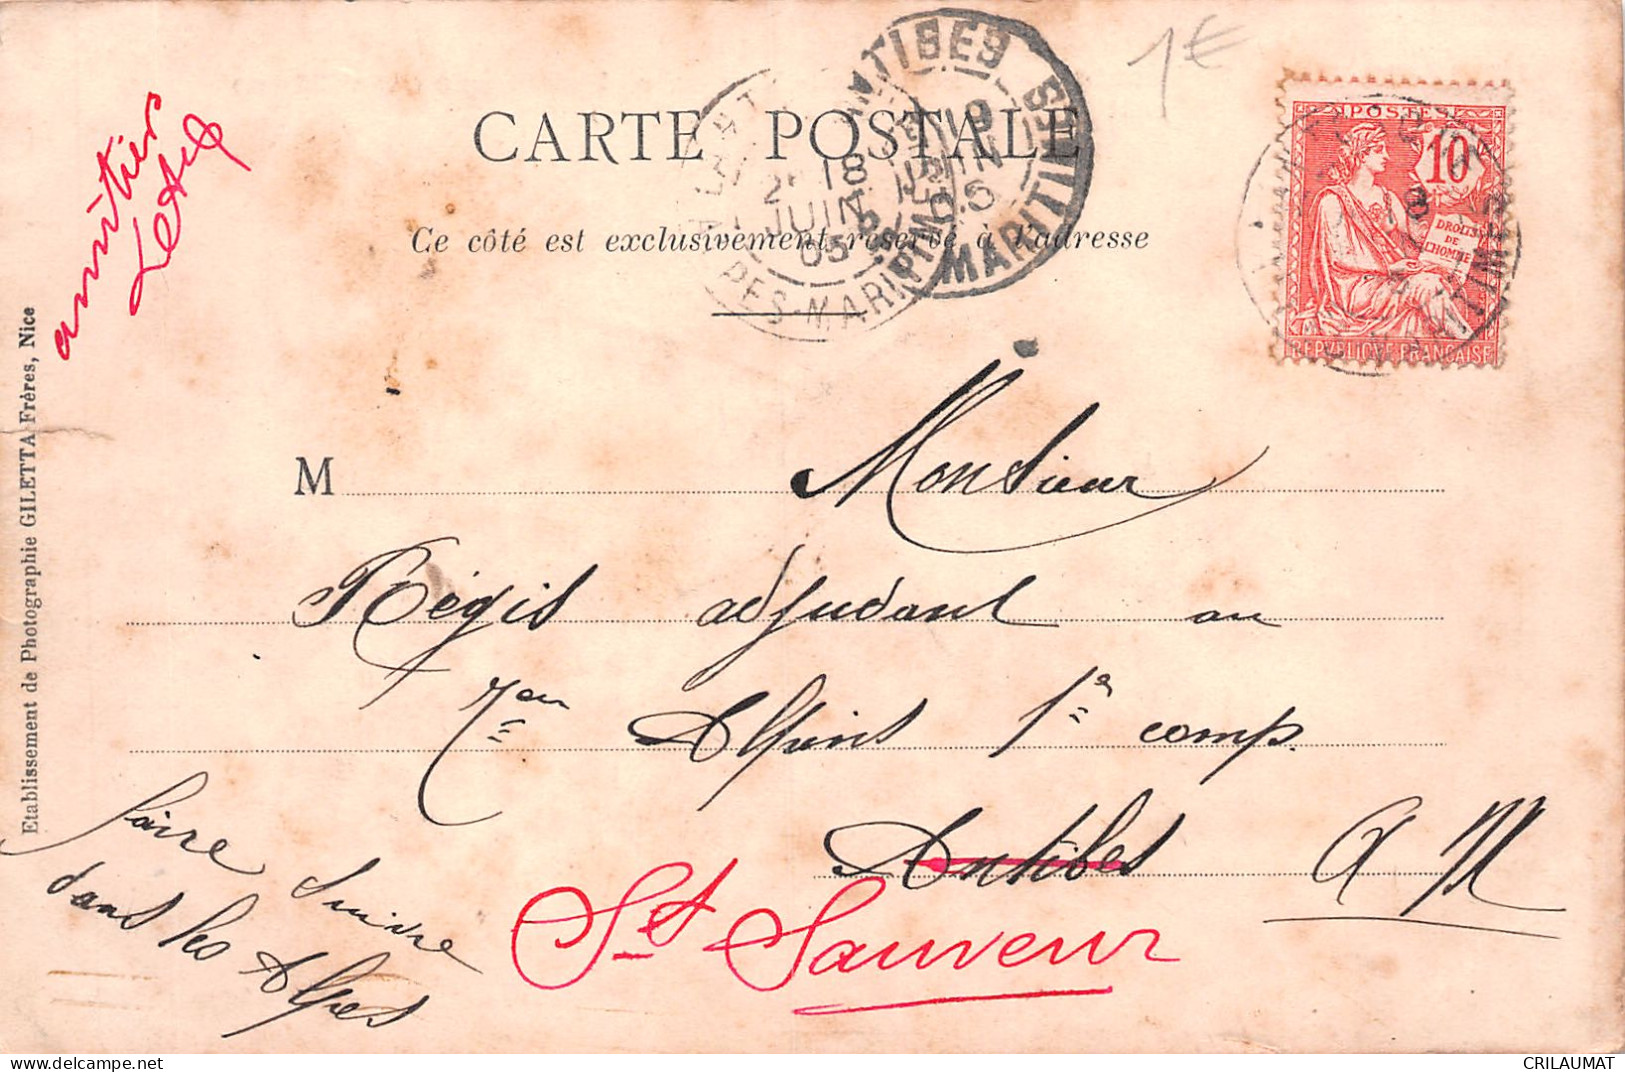 1€
CARTE POSTALE
Ce côté est exclusivement réservé à l'adresse
ANTIBES
ALPES-MARITIMES
18
JUIN
05
ALPES-MARITIMES
19
JUIN
05
POSTES
10
DROITS
DE
L'HOMME
REPVBLIQVE FRANÇAISE
Etablissement de Photographie GILETTA Frères, Nice
M Monsieur
Régis adjudant au
7em Alpins 1re comp.
Antibes A M
St Sauveur
faire suivre
dans les Alpes
CRILAUMAT